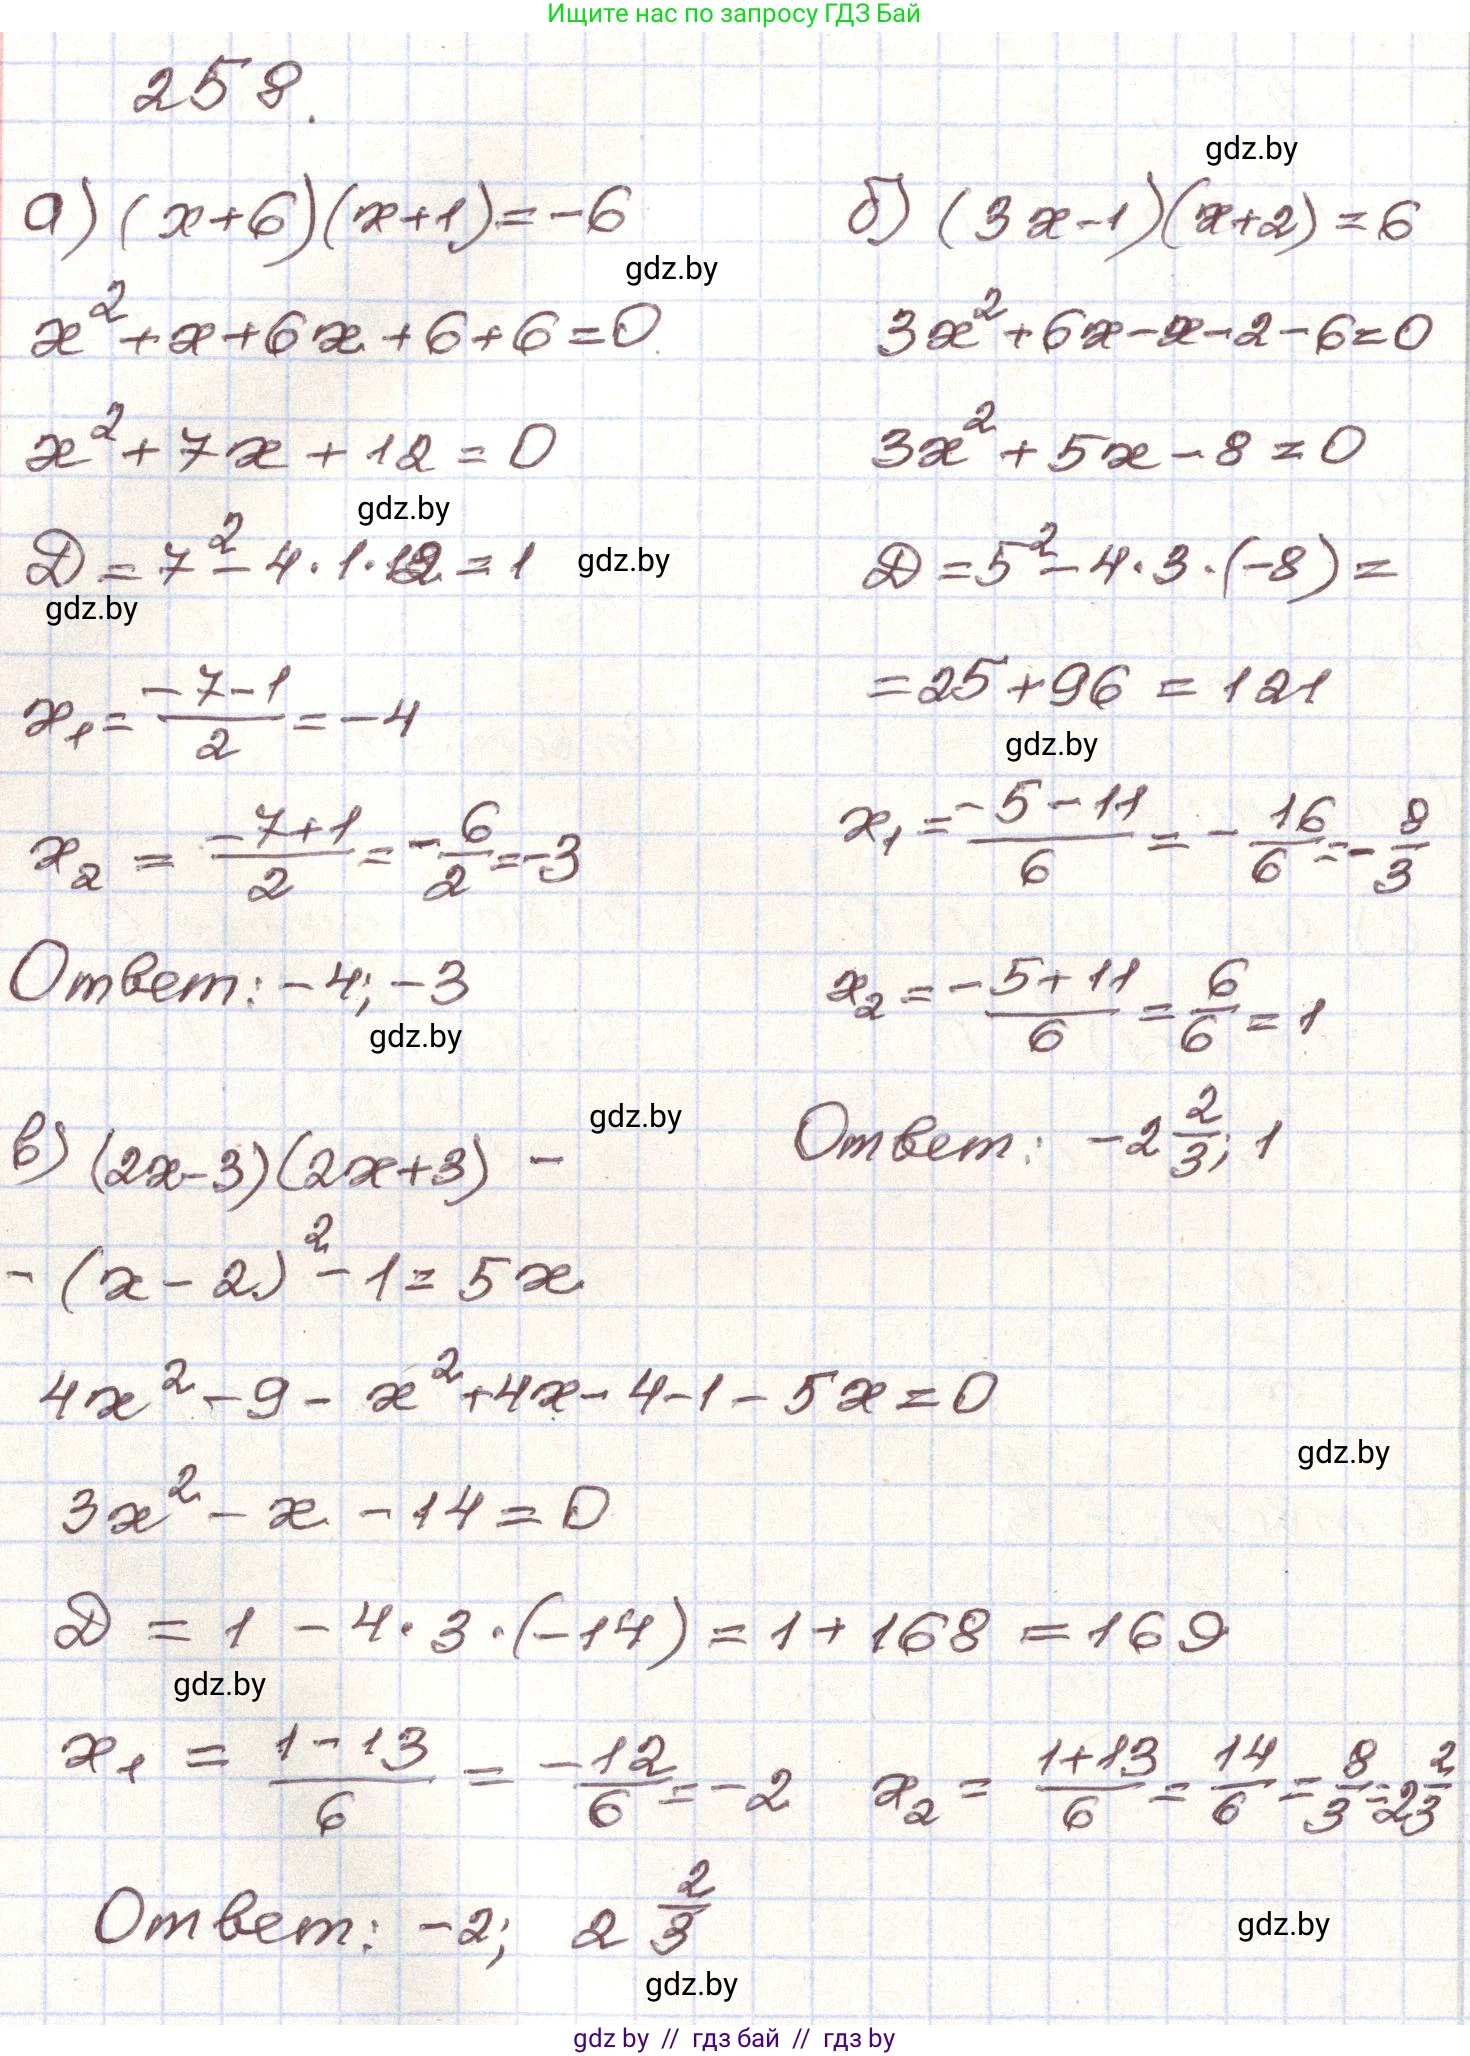 Ищите нас по запросу ГДЗ Бай
258.
gdz.by
а) (x+6)(x+1)=-6
gdz.by
x²+x+6x+6+6=0
x²+7x+12=0
gdz.by
D=7²-4·1·12=1
gdz.by
gdz.by
x₁=(-7-1)/2=-4
x₂=(-7+1)/2=-6/2=-3
Ответ: -4; -3
gdz.by
б) (3x-1)(x+2)=6
3x²+6x-x-2-6=0
3x²+5x-8=0
D=5²-4·3·(-8)=
=25+96=121
gdz.by
x₁=(-5-11)/6=-16/6=-8/3
x₂=(-5+11)/6=6/6=1
Ответ: -2 2/3; 1
gdz.by
в) (2x-3)(2x+3)-
-(x-2)²-1=5x
4x²-9-x²+4x-4-1-5x=0
gdz.by
3x²-x-14=0
D=1-4·3·(-14)=1+168=169
gdz.by
x₁=(1-13)/6=-12/6=-2 x₂=(1+13)/6=14/6=8/3=2 2/3
Ответ: -2; 2 2/3
gdz.by
gdz.by
gdz by // гдз бай // гдз by